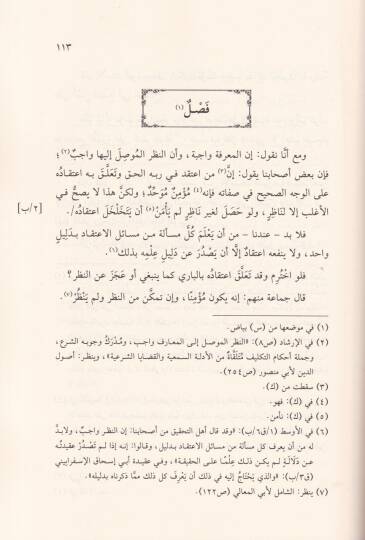 ١١٣
فَصْلٌ (١)
ومع أنَّا نقول: إن المعرفة واجبة، وأن النظر المُوصِلَ إليها واجبٌ(٢)؛
فإن بعض أصحابنا يقول: إنَّ(٣) من اعتقد في ربه الحق وتَعَلَّقَ به اعتقادُه
على الوجه الصحيح في صفاته فإنه(٤) مُؤْمِنٌ مُوَحِّدٌ؛ ولكنَّ هذا لا يصحُّ في
الأغلب إلا لناظِرٍ، ولو حَصَلَ لغير ناظِرٍ لم يَأْمَنْ(٥) أن يَتَخَلْخَلَ اعتقادُه/.
[٢/ب]
فلا بد – عندنا – من أن يَعْلَمَ كُلَّ مسألة من مسائل الاعتقاد بدَلِيلٍ
واحد، ولا ينفعه اعتقادٌ إلَّا أن يَصْدُرَ عن دَلِيلِ عِلْمِه بذلك(٦).
فلو اخْتُرِم وقد تَعَلَّقَ اعتقادُه بالباري كما ينبغي أو عَجَزَ عن النظر؟
قال جماعة منهم: إنه يكون مؤمنًا، وإن تمكَّن من النظر ولم يَنْظُرْ(٧).
(١) في موضعها من (س) بياض.
(٢) في الإرشاد (ص٨): «النظر الموصل إلى المعارف واجب، ومُدْرَكُ وجوبه الشرع،
وجملة أحكام التكليف مُتَلَقَّاةٌ من الأدلة السمعية والقضايا الشرعية»، وينظر: أصول
الدين لأبي منصور (ص٢٥٤).
(٣) سقطت من (ك).
(٤) في (ك): فهو.
(٥) في (ك): نأمن.
(٦) في الأوسط (١/ق٦/ب): «وقد قال أهل التحقيق من أصحابنا: إن النظر واجبٌ، ولابدَّ
له من أن يعرف كل مسألة من مسائل الاعتقاد بدليل، وقالوا: إنه إذا لم تَصْدُرْ عقيدتُه
عن دَلَالَةٍ لم يكن ذلك عِلْمًا على الحقيقة»، وفي عقيدة أبي إسحاق الإسفراييني
(ق٣/ب): «والذي يَحْتَاجُ إليه في ذلك أن يَعْرِفَ كل ذلك ممَّا ذكرناه بدليله».
(٧) ينظر: الشامل لأبي المعالي (ص١٢٢).